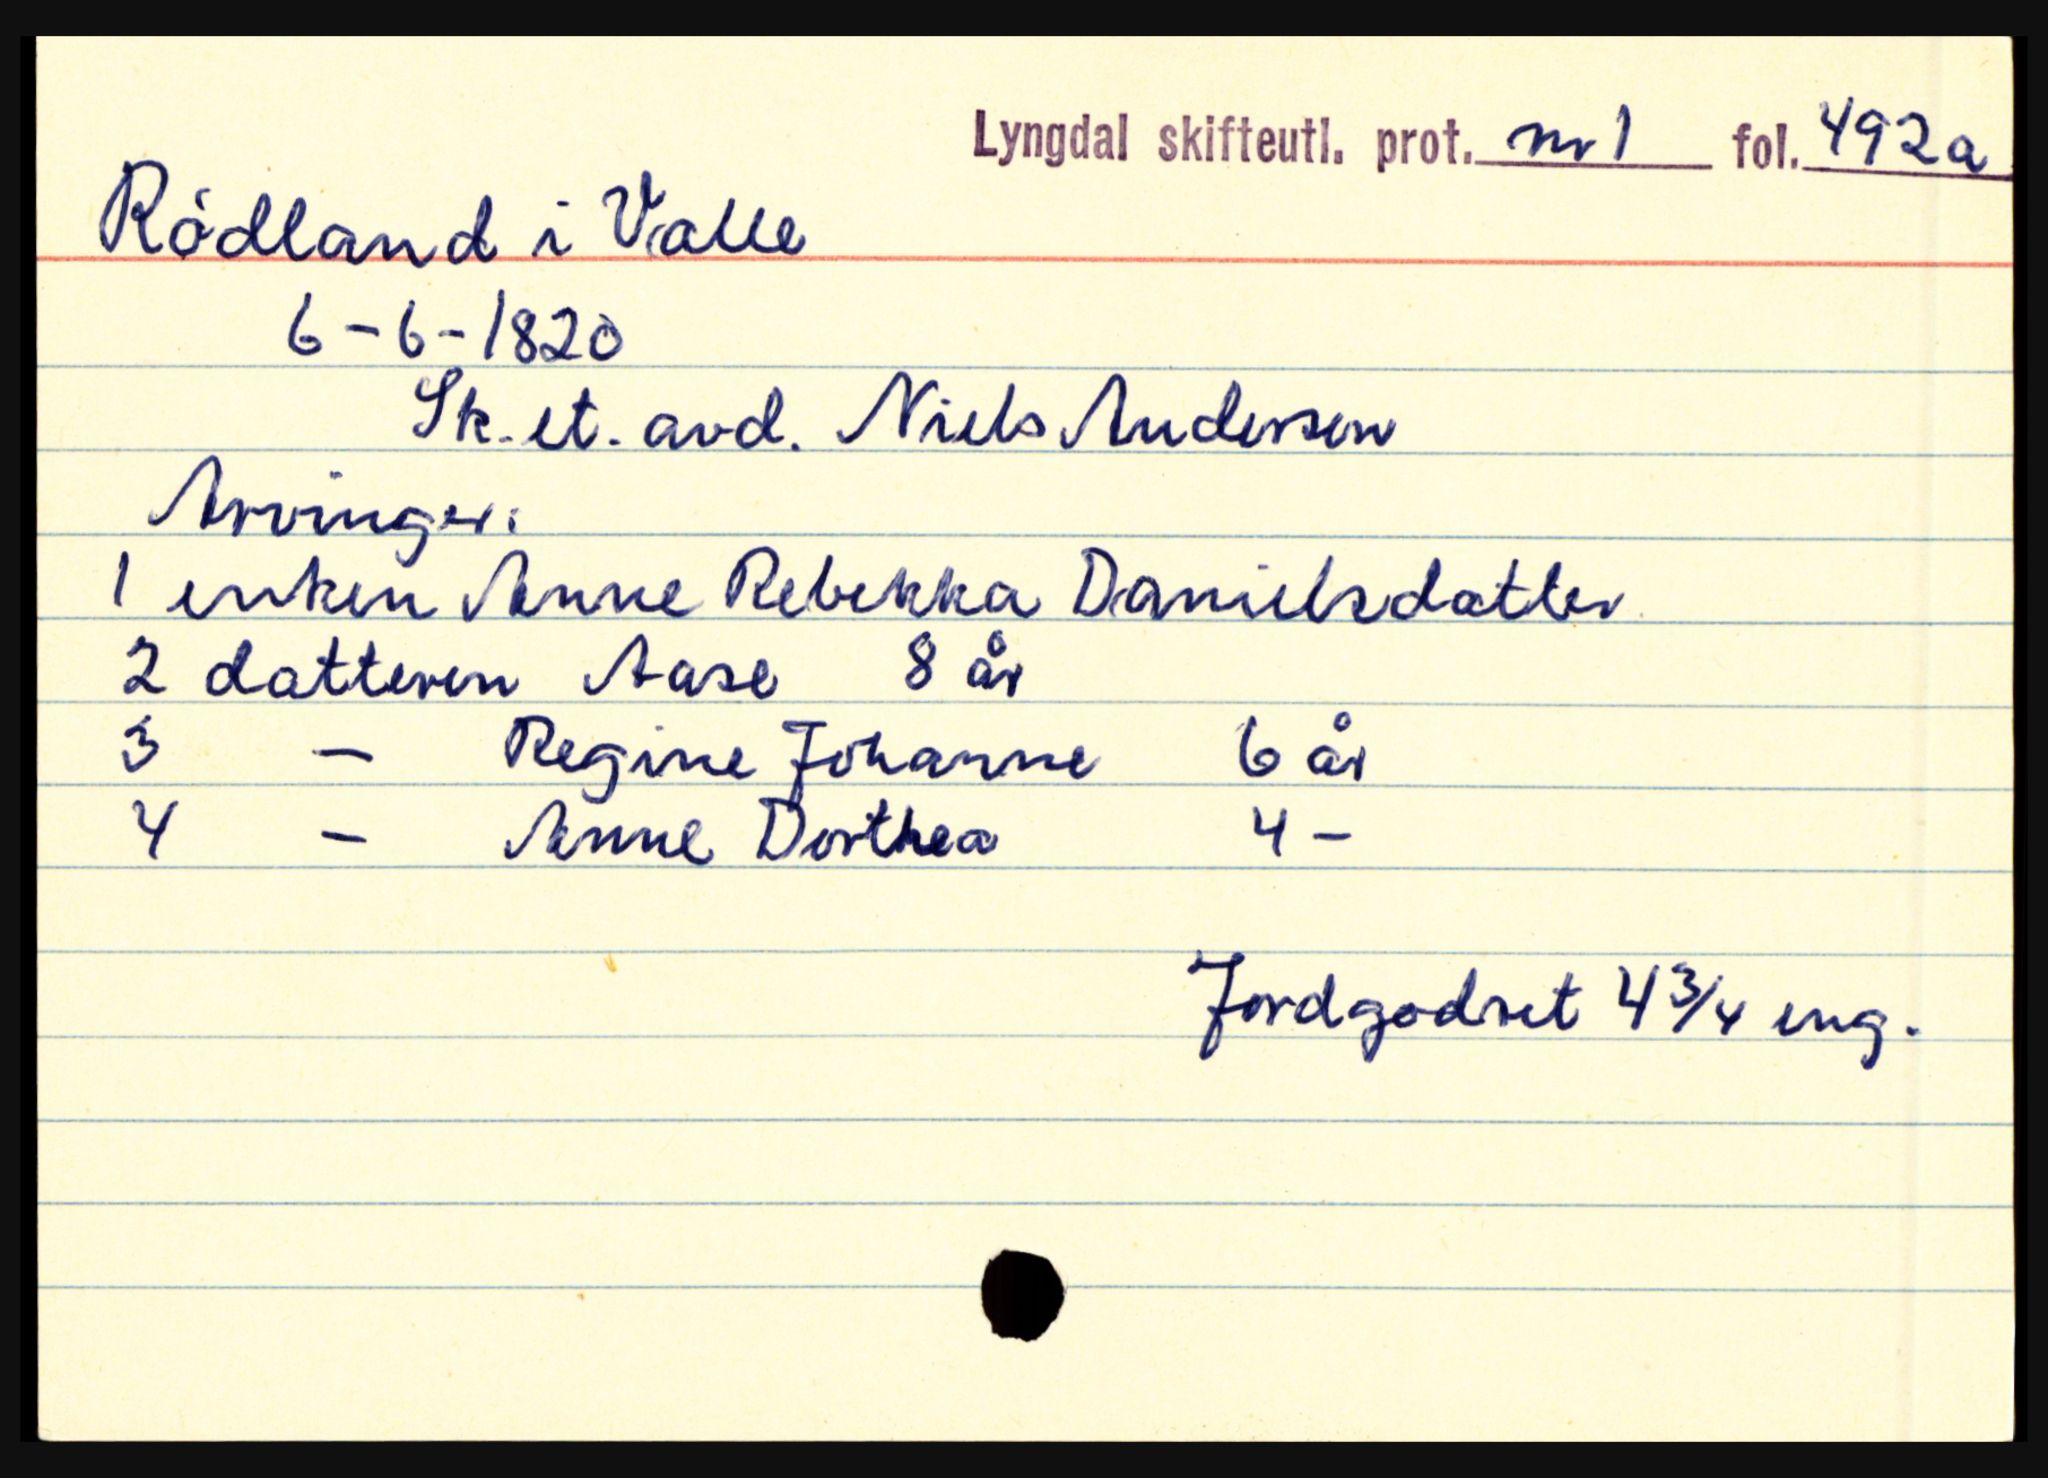 Lyngdal skifteutl. prot. nr 1 fol. 492a
Rödland i Valle
6-6-1820
Sk. et. avd. Niels Andersen
Arvinger:
1 enken Anne Rebekka Danielsdatter
2 datteren Aase 8 år
3 — Regine Johanne 6 år
4 — Anne Dorthea 4 —
Jordgodset 4 3/4 eng.